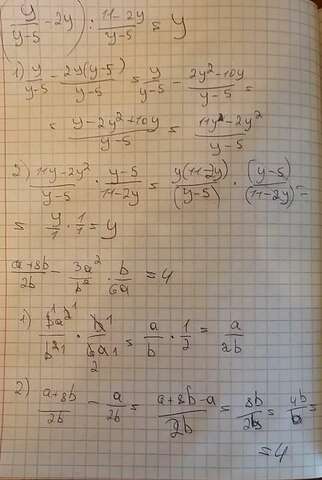 (y/(y-5) - 2y) : (11-2y)/(y-5) = y
1) y/(y-5) - 2y(y-5)/(y-5) = y/(y-5) - (2y²-10y)/(y-5) =
= (y-2y²+10y)/(y-5) = (11y-2y²)/(y-5)
2) (11y-2y²)/(y-5) · (y-5)/(11-2y) = y(11-2y)/(y-5) · (y-5)/(11-2y) =
= y/1 · 1/1 = y
(a+8b)/2b - 3a²/b² · b/6a = 4
1) 3a²/b² · b/6a = a/b · 1/2 = a/2b
2) (a+8b)/2b - a/2b = (a+8b-a)/2b = 8b/2b = 4b/b
= 4